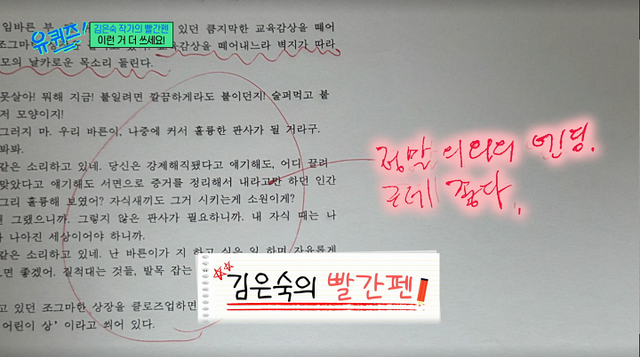 유퀴즈
김은숙 작가의 빨간펜
이런 거 더 쓰세요!
있던 큼지막한 교육감상을 떼어
교육감상을 떼어내느라 벽지가 따라
모의 날카로운 목소리 들린다.
못살아! 뭐해 지금! 붙일려면 깔끔하게라도 붙이던지! 술퍼먹고 붙
저 모양이지!
그러지 마. 우리 바른이, 나중에 커서 훌륭한 판사가 될 거라구.
봐봐.
같은 소리하고 있네. 당신은 강제해직됐다고 얘기해도, 어디 끌려
맞았다고 얘기해도 서면으로 증거를 정리해서 내라고만 하던 인간
그리 훌륭해 보였어? 자식새끼도 그거 시키는게 소원이게?
그랬으니까. 그렇지 않은 판사가 필요하니까. 내 자식 때는 나
나아진 세상이어야 하니까.
같은 소리하고 있네. 난 바른이가 지 하고 싶은 일 하며 자유롭게
면 좋겠어. 질척대는 것들, 발목 잡는
고 있던 조그마한 상장을 클로즈업하면
어린이 상' 이라고 씌어 있다.
정말 의외의 엔딩.
근데 좋다.
김은숙의 빨간펜